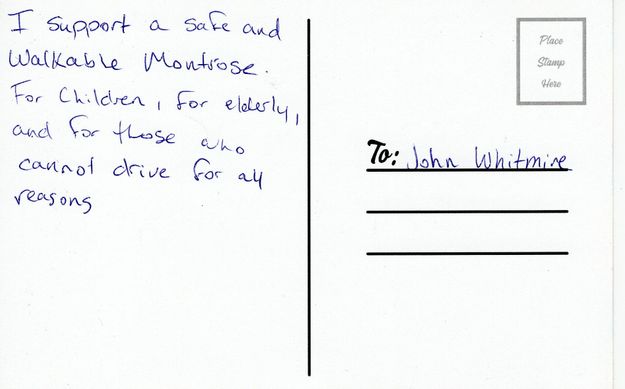 I support a safe and
Walkable Montrose.
For Children, for elderly,
and for those who
cannot drive for all
reasons
Place
Stamp
Here
To: John Whitmire